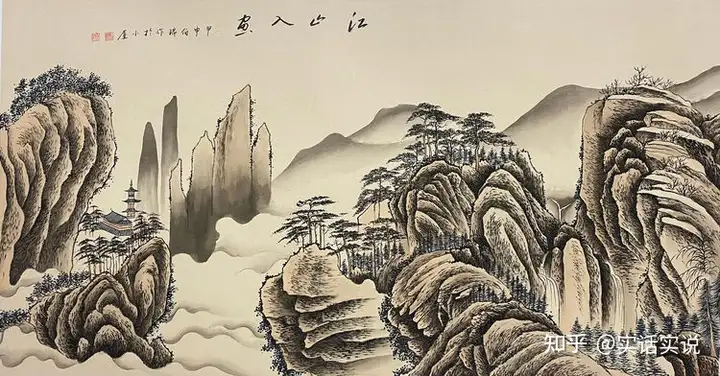 江山入画
甲申 作於小
知乎 @实话实说